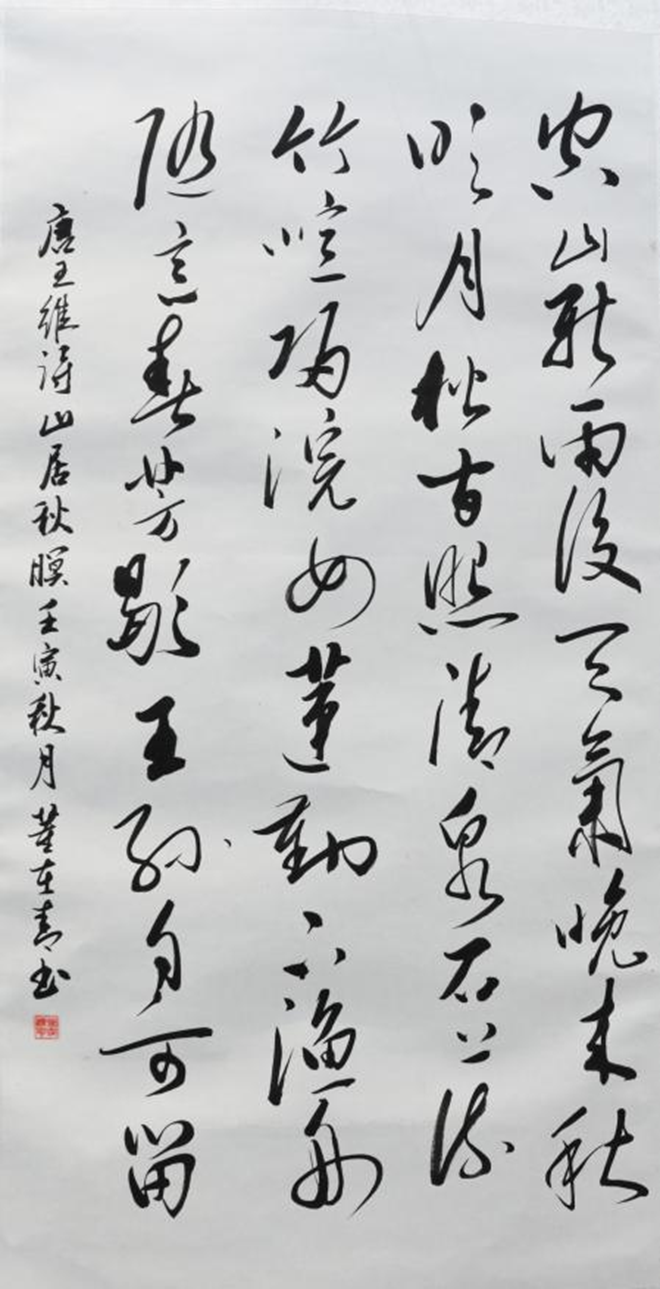 空山新雨後天氣晚来秋
明月松間照清泉石上流
竹喧歸浣女蓮動下漁舟
随意春芳歇王孫自可留
唐王維詩山居秋暝壬寅秋月董在青书